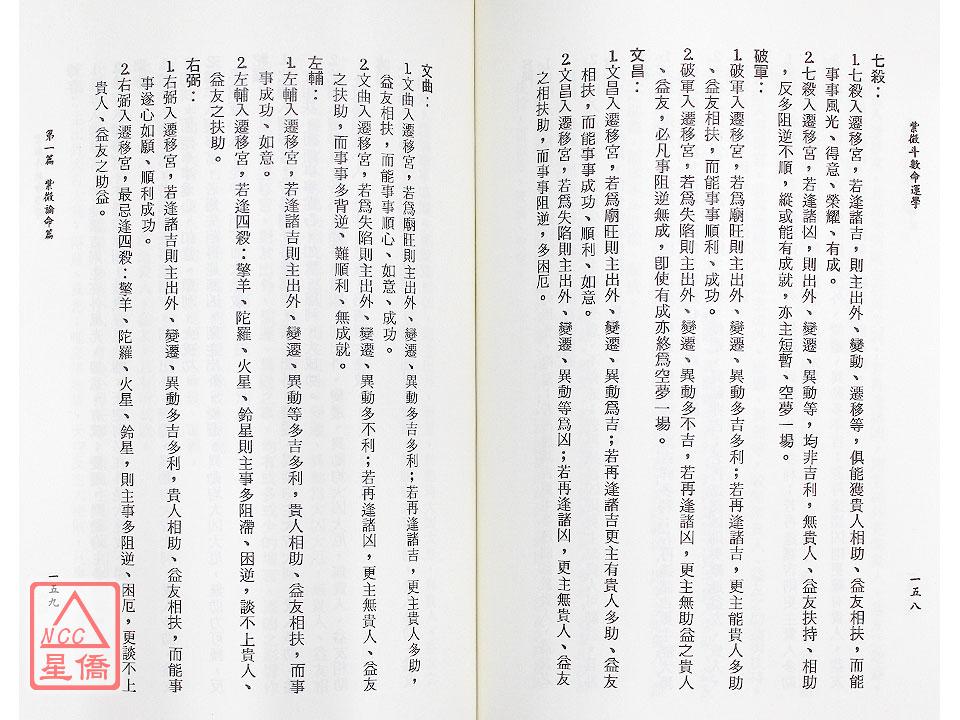 紫微斗數命運學
七殺：
1.七殺入遷移宮，若逢諸吉，則主出外、變動、遷移等，俱能獲貴人相助、益友相扶，而能
事事風光、得意、榮耀、有成。
2.七殺入遷移宮，若逢諸凶，則出外、變遷、異動等，均非吉利，無貴人、益友扶持、相助
，反多阻逆不順，縱或能有成就，亦主短暫、空夢一場。
破軍：
1.破軍入遷移宮，若爲廟旺則主出外、變遷、異動多吉多利；若再逢諸吉，更主能貴人多助
、益友相扶，而能事事順利、成功。
2.破軍入遷移宮，若爲失陷則主出外、變遷、異動多不吉，若再逢諸凶，更主無助益之貴人
、益友，必凡事阻逆無成，即使有成亦終爲空夢一場。
文昌：
1.文昌入遷移宮，若爲廟旺則主出外、變遷、異動爲吉；若再逢諸吉更主有貴人多助、益友
相扶，而能事事成功、順利、如意。
2.文昌入遷移宮，若爲失陷則主出外、變遷、異動等爲凶；若再逢諸凶，更主無貴人、益友
之相扶助，而事事阻逆，多困厄。
一五八
文曲：
1.文曲入遷移宮，若爲廟旺則主出外、變遷、異動多吉多利；若再逢諸吉，更主貴人多助，
益友相扶，而能事事順心、如意、成功。
2.文曲入遷移宮，若爲失陷則主出外、變遷、異動多不利；若再逢諸凶，更主無貴人、益友
之扶助，而事事多背逆、難順利、無成就。
左輔：
1.左輔入遷移宮，若逢諸吉則主出外、變遷、異動等多吉多利，貴人相助、益友相扶，而事
事成功、如意。
2.左輔入遷移宮，若逢四殺：擎羊、陀羅、火星、鈴星則主事多阻滯、困逆，談不上貴人、
益友之扶助。
右弼：
1.右弼入遷移宮，若逢諸吉則主出外、變遷、異動多吉多利，貴人相助、益友相扶，而能事
事遂心如願、順利成功。
2.右弼入遷移宮，最忌逢四殺：擎羊、陀羅、火星、鈴星，則主事多阻逆、困厄，更談不上
貴人、益友之助益。
第一篇 紫微論命篇
一五九
NCC
星僑